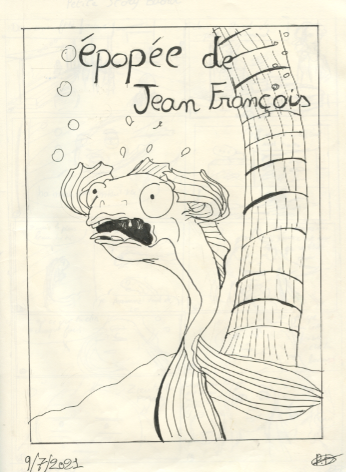 épopée de
Jean François
9/7/2021